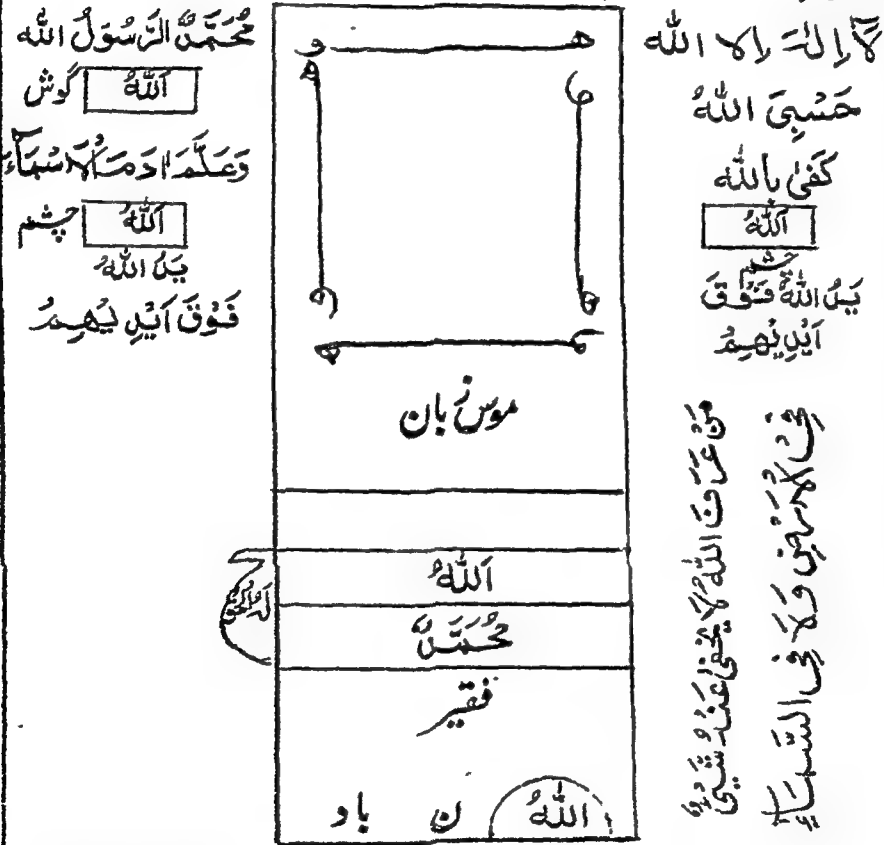 لَآ اِلٰہَ اِلا اللہ
حَسْبِیَ اللہُ
کَفیٰ بِاللہ
اَللہُ
چشم
یَدُ اللہُ فَوْقَ
اَیْدِیْهِمْ
مَنْ عَرَفَ اللہُ لَا یَخْفیٰ عَنْدُ شَیْیٌٔ
فِی الْاَرْضِ وَلَا فِی السَّمَآءِ
و ھ
ھ
و
ھ
موس زبان
اَللہُ
مُحَمَّدٌ
لَہُ الْحَقُّ
فقیر
اللہُ ن باو
مُحَمَّدٌ الرَّسُوْلُ اللہ
اَللہُ گوش
وَعَلَّمَ اٰدَمَ الْاَسْمَآءَ
اَللہُ چشم
یَدُ اللہُ
فَوْقَ اَیْدِیْهِمْ